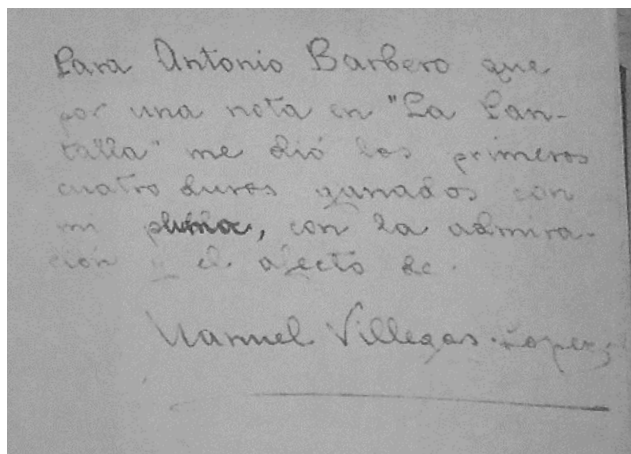 Para Antonio Barbero que
por una nota en "La Pan-
talla" me dió los primeros
cuatro duros ganados con
mi pluma, con la admira-
ción y el afecto de.
Manuel Villegas López